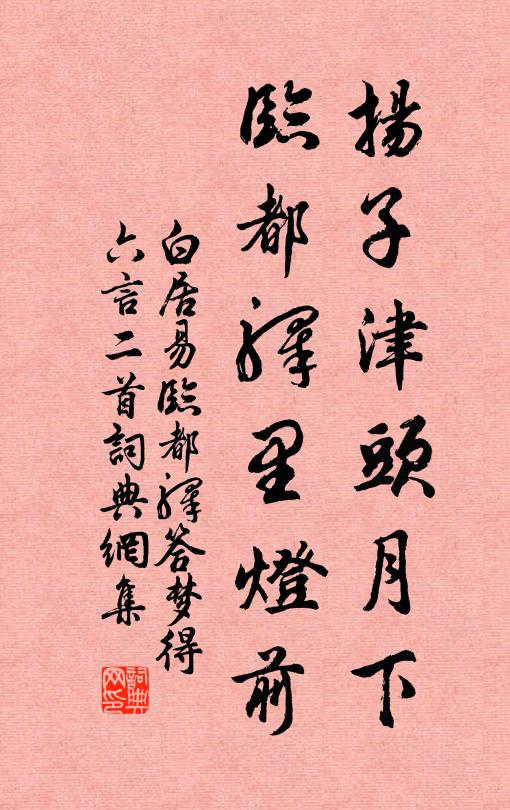 揚子津頭月下
臨都驛里燈前
白居易臨都驛答梦得
六言二首詞典網集
詞典网印